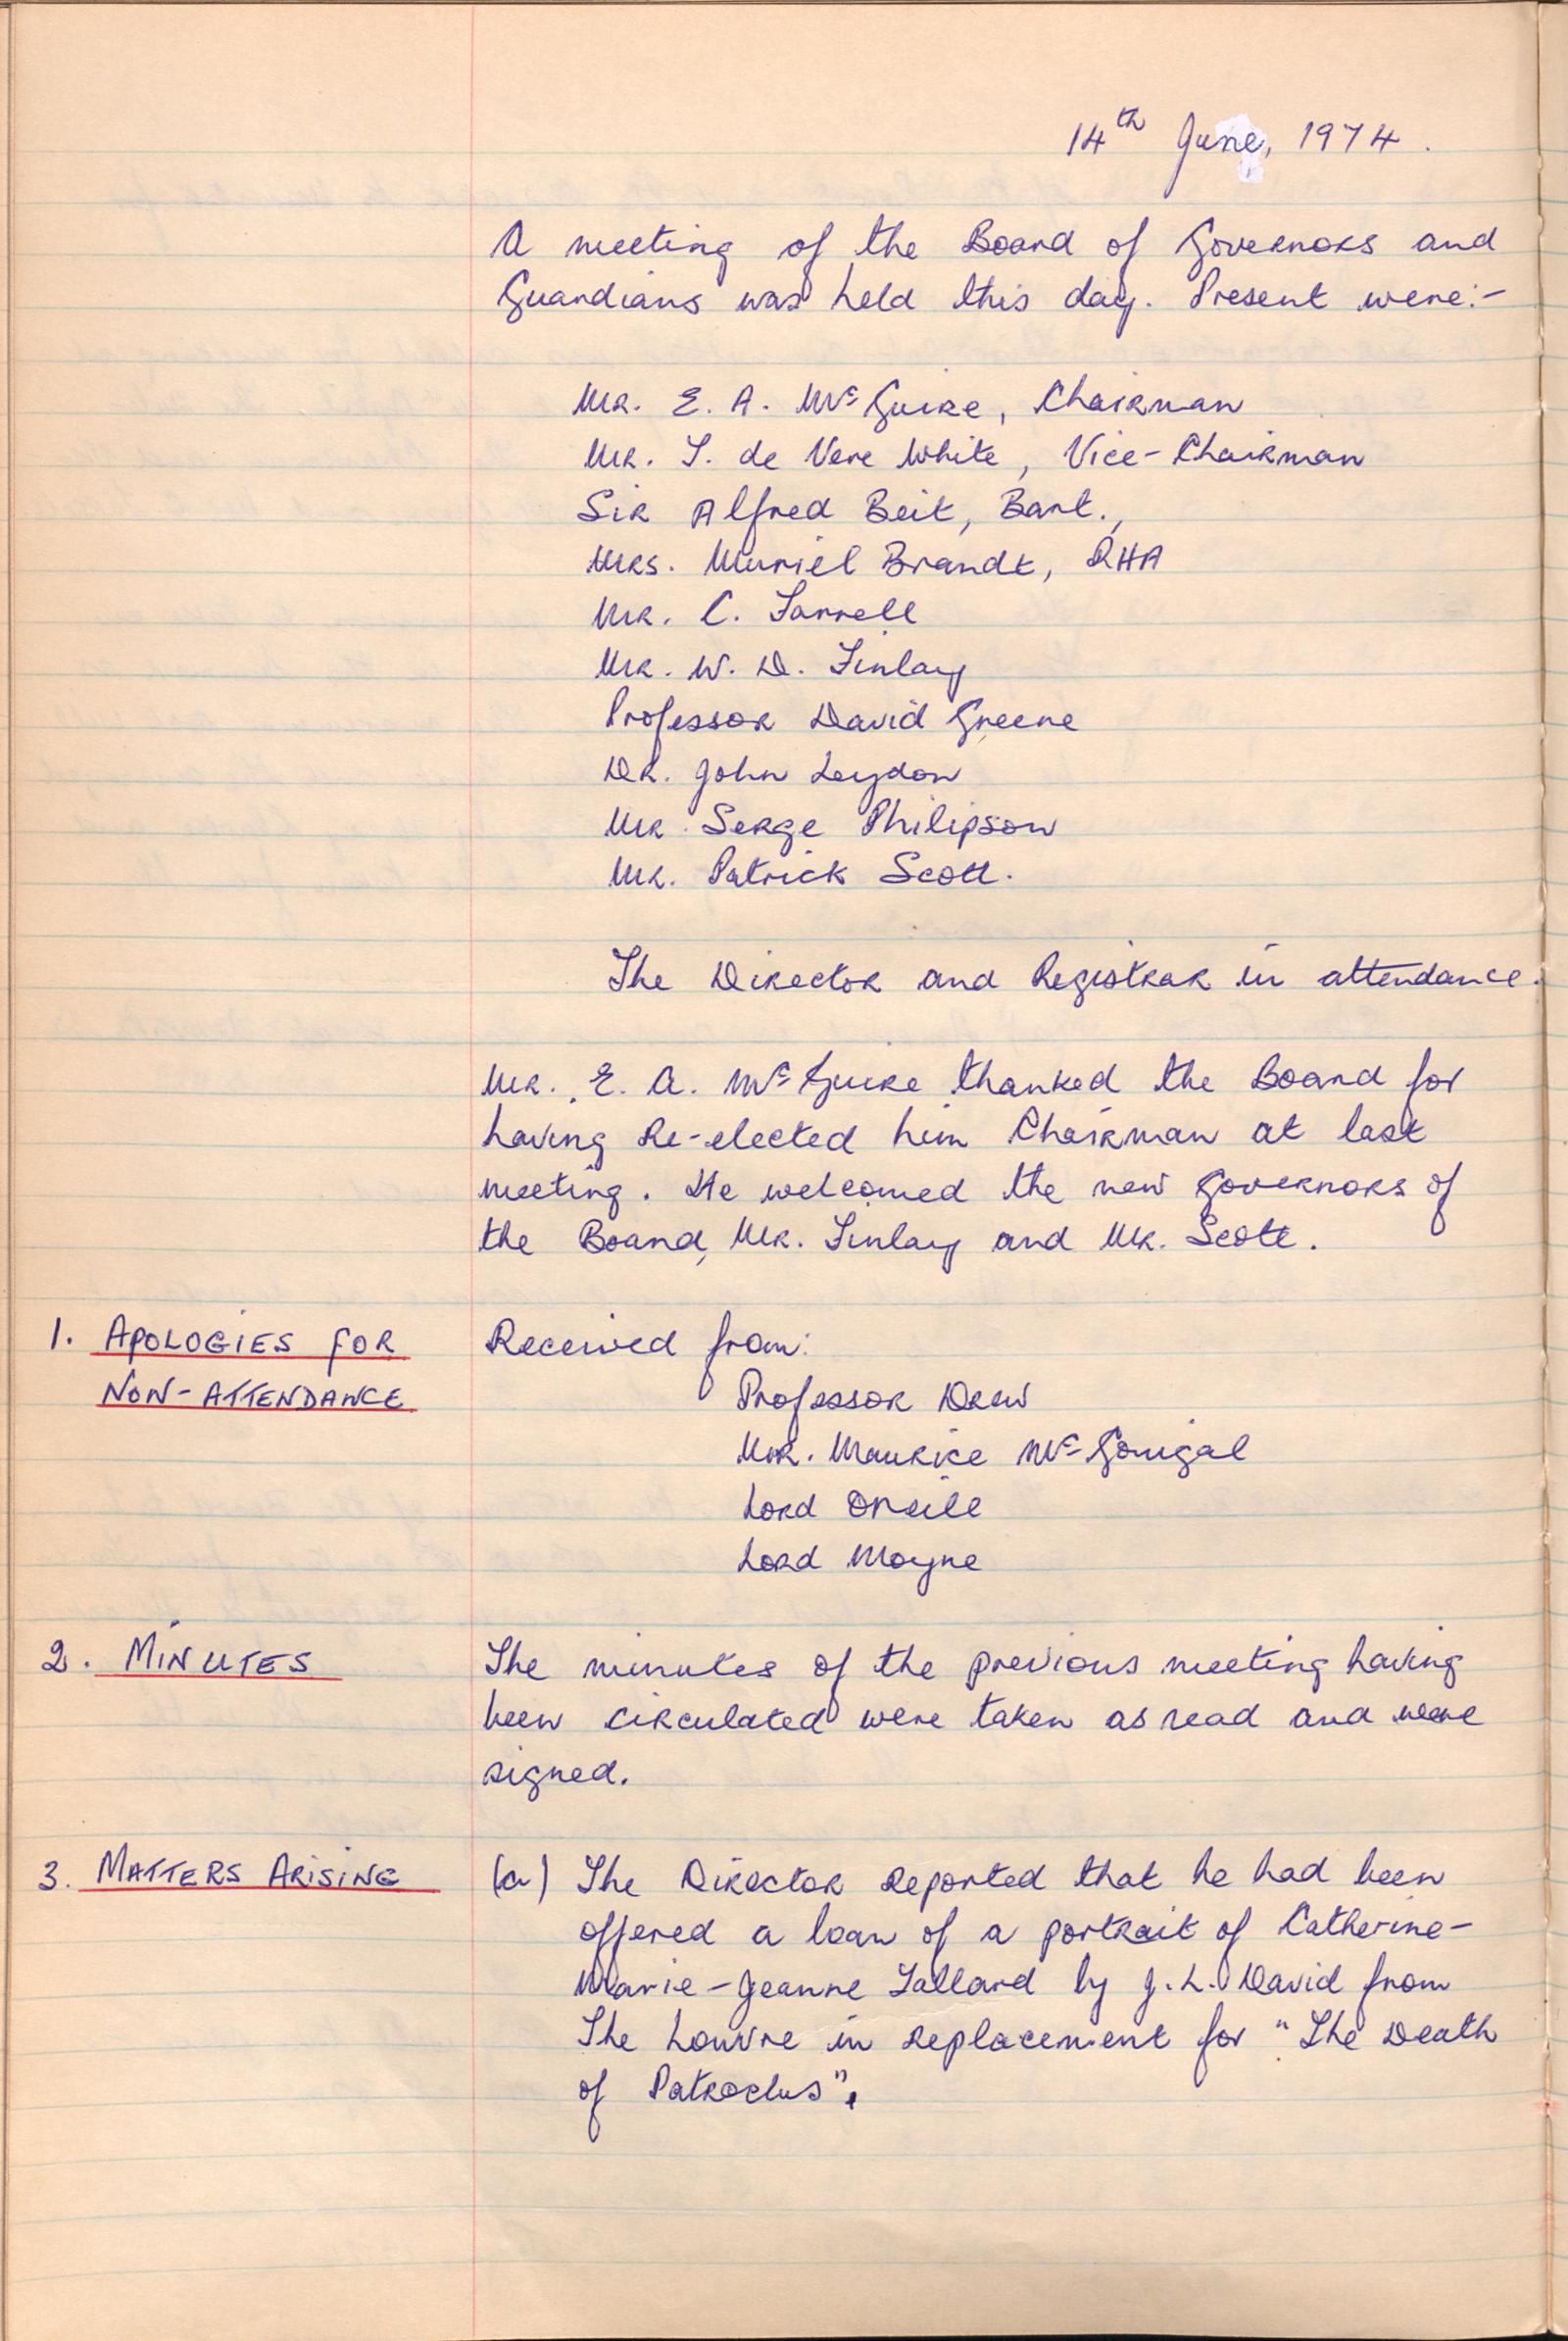 14th June, 1974.
A meeting of the Board of Governors and
Guardians was held this day. Present were:-
Mr. E. A. McGuire, Chairman
Mr. T. de Vere White, Vice-Chairman
Sir Alfred Beit, Bart.,
Mrs. Muriel Brandt, RHA
Mr. C. Farrell
Mr. W. D. Finlay
Professor David Greene
Dr. John Leydon
Mr. Serge Philipson
Mr. Patrick Scott.
The Director and Registrar in attendance.
Mr. E. A. McGuire thanked the Board for
having Re-elected him Chairman at last
meeting. He welcomed the new Governors of
the Board, Mr. Finlay and Mr. Scott.
1. APOLOGIES FOR
NON-ATTENDANCE
Received from:
Professor Drew
Mr. Maurice McGonigal
Lord O'Neill
Lord Moyne
2. MINUTES
The minutes of the previous meeting having
been circulated were taken as read and were
signed.
3. MATTERS ARISING
(a) The Director reported that he had been
offered a loan of a portrait of Catherine-
Marie-Jeanne Tallard by J. L. David from
The Louvre in replacement for "The Death
of Patroclus".